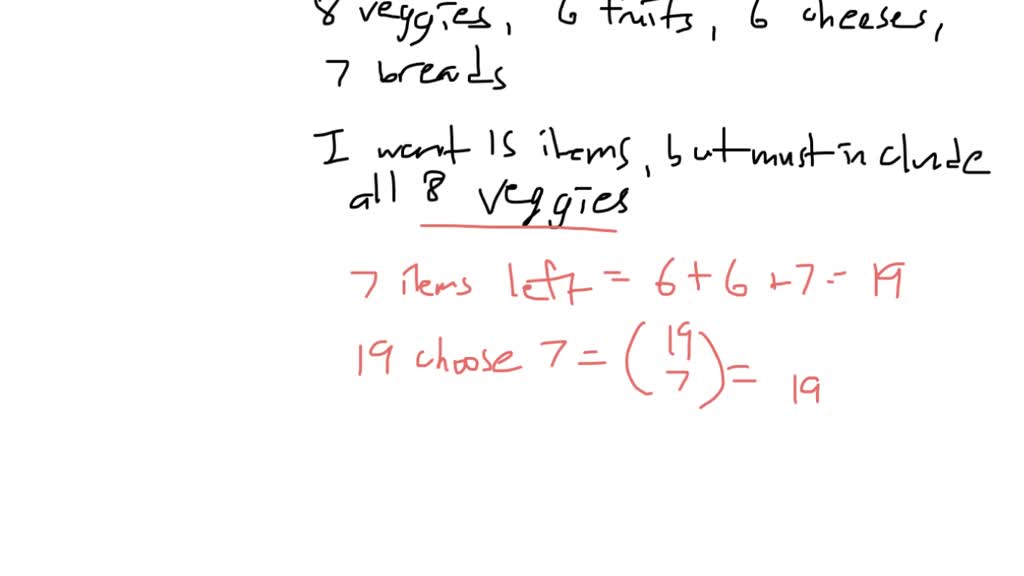 8 veggies, 6 fruits, 6 cheeses,
7 breads
I want 15 items, but must include
all 8 veggies
7 items left = 6 + 6 + 7 = 19
19 choose 7 = (19 7) = 19